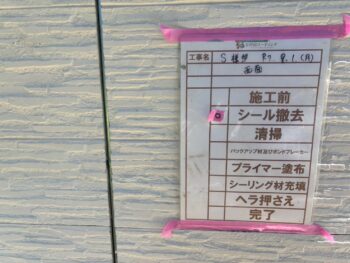 工事名 S様邸 R7.9.1(月)
西面
施工前
シール撤去
清掃
バックアップ材及びボンドブレーカー
プライマー塗布
シーリング材充填
ヘラ押さえ
完了